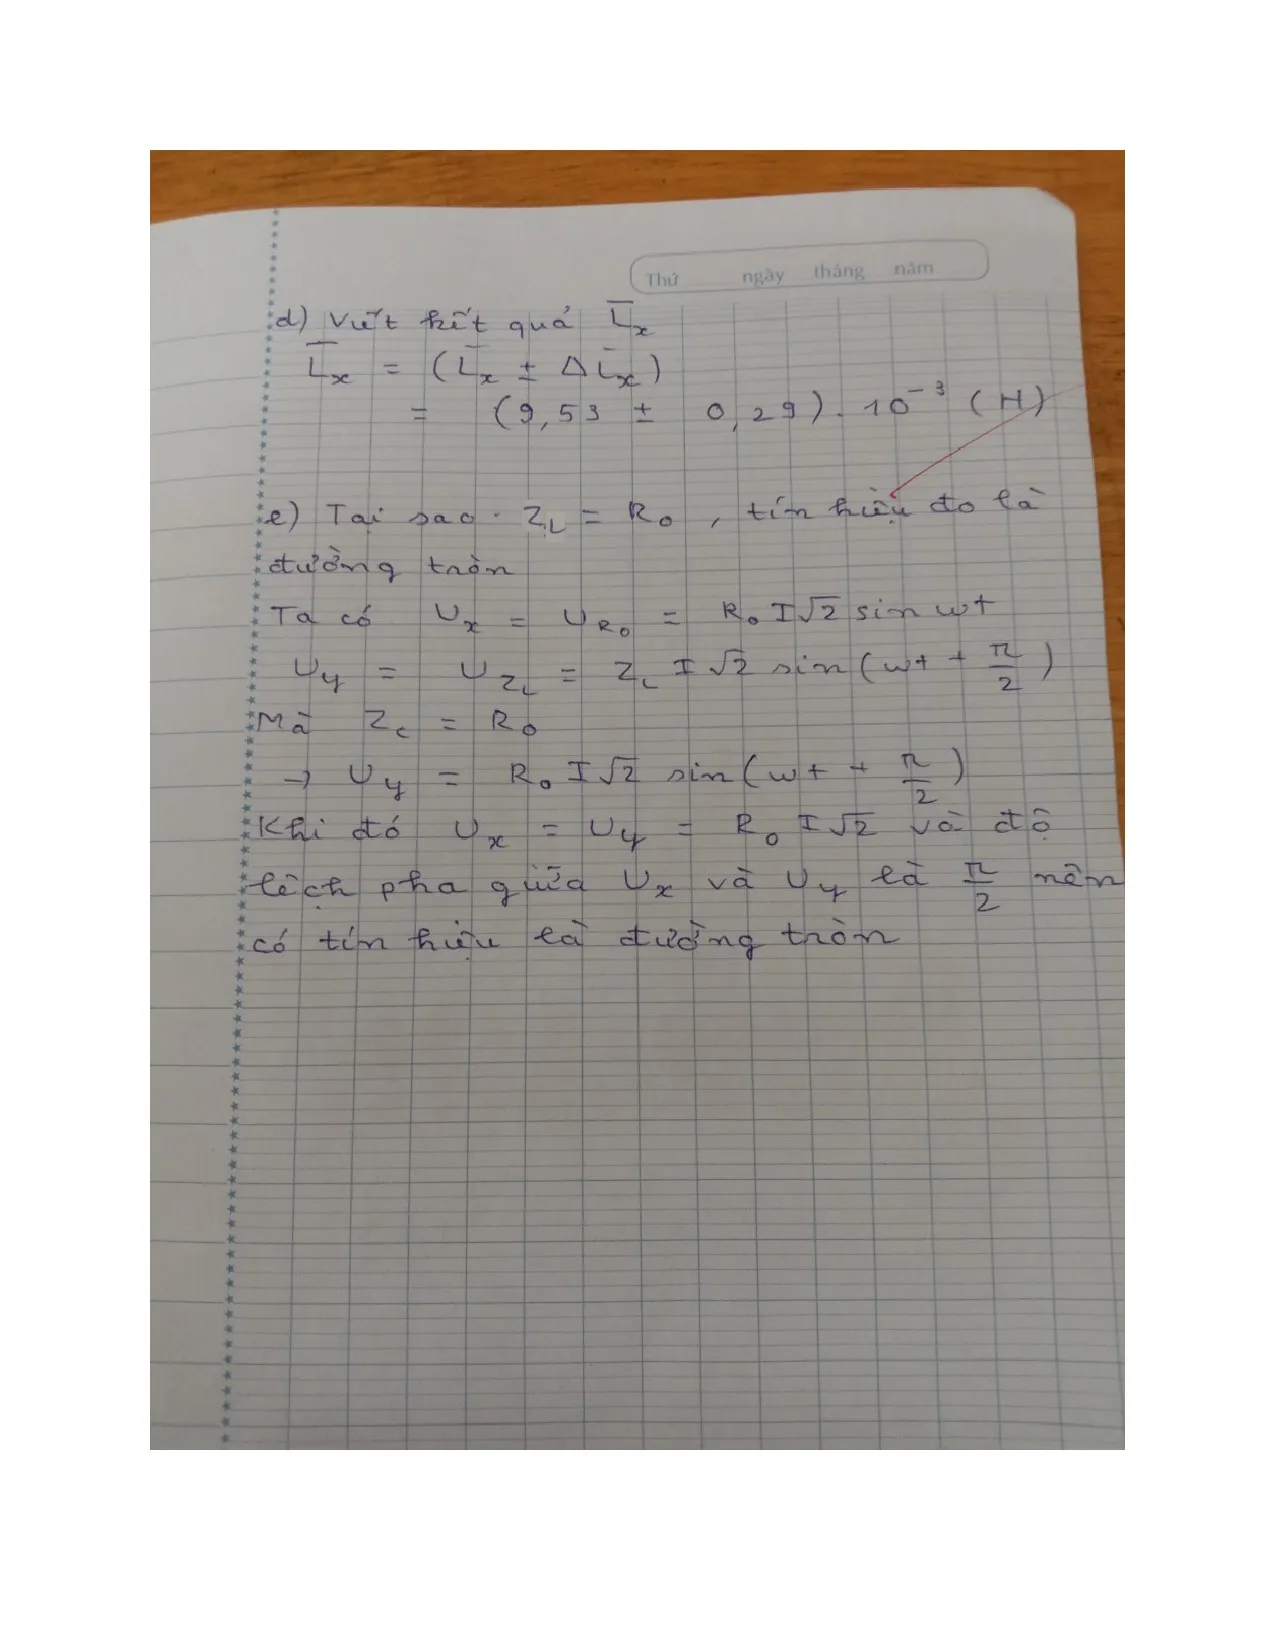 Thứ ngày tháng năm
d) Viết kết quả L̅ₓ
L̅ₓ = (L̅ₓ ± ΔL̅ₓ)
= (9,53 ± 0,29).10⁻³ (H)
e) Tại sao Z_L = R₀, tín hiệu đo là
đường tròn
Ta có Uₓ = U_R₀ = R₀I√2 sin ωt
U_y = U_Z_L = Z_L I√2 sin(ωt + π/2)
Mà Z_c = R₀
→ U_y = R₀I√2 sin(ωt + π/2)
Khi đó Uₓ = U_y = R₀I√2 và độ
lệch pha giữa Uₓ và U_y là π/2 nên
có tín hiệu là đường tròn